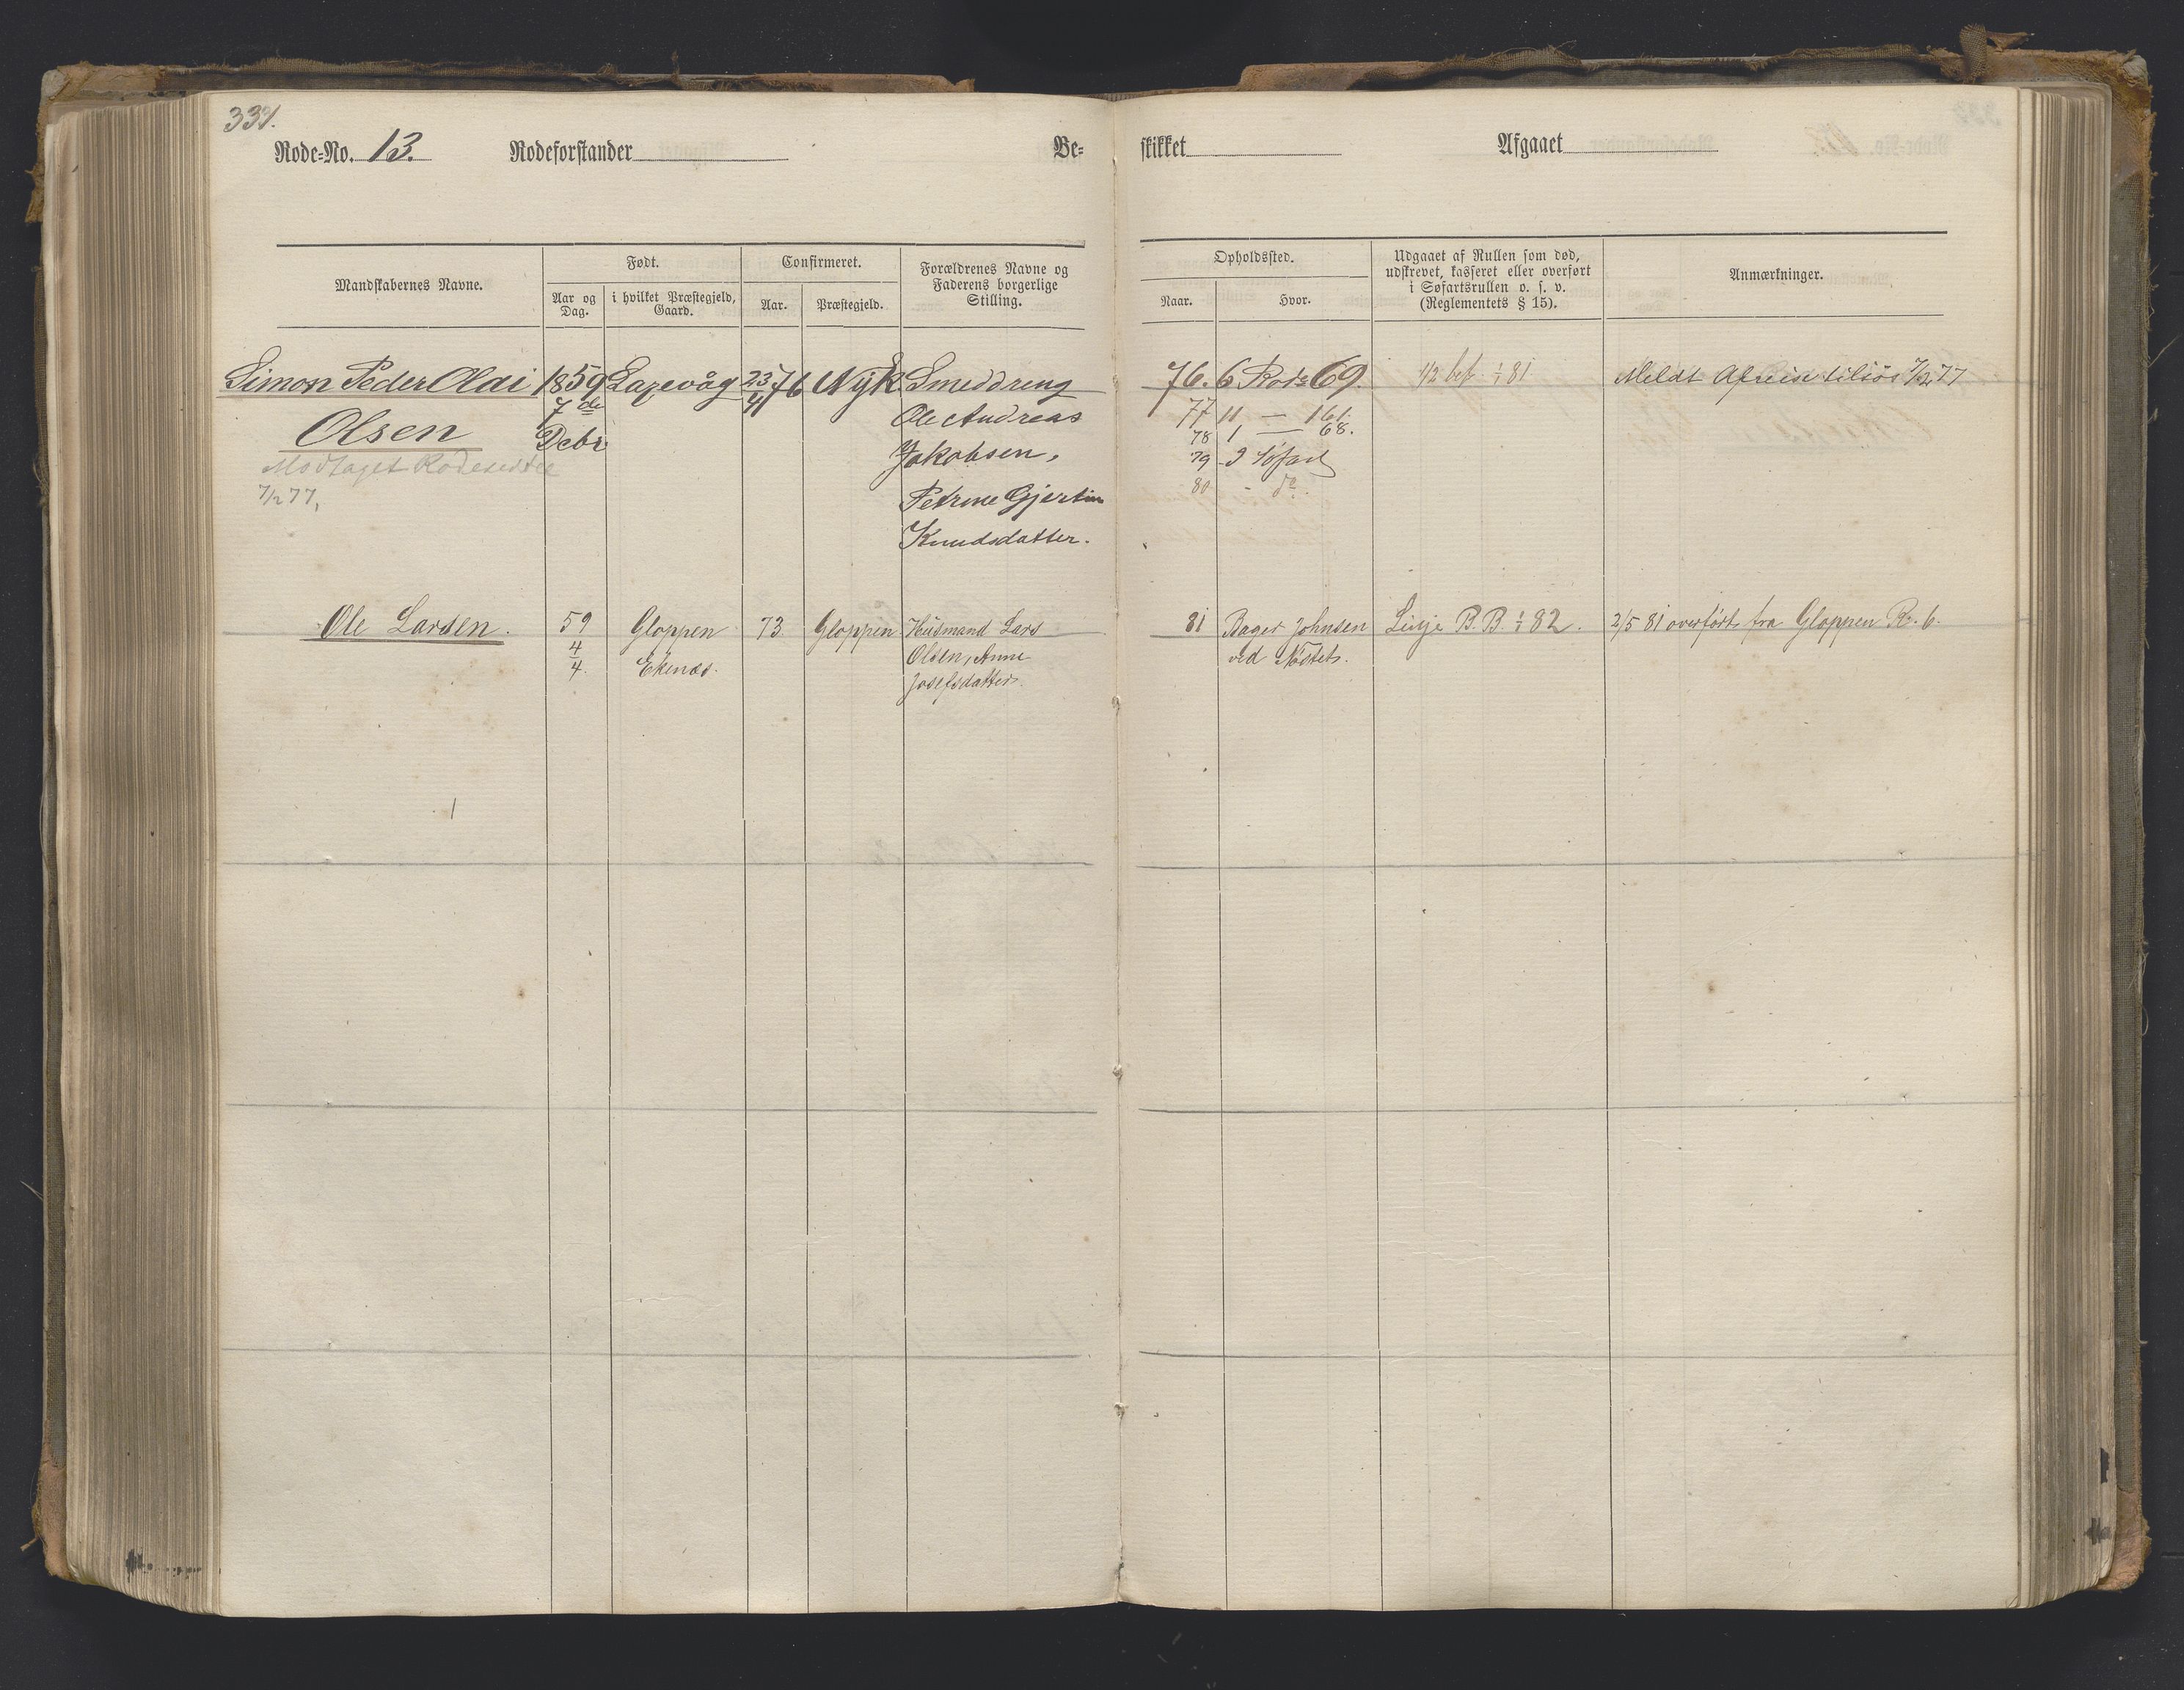 331.
Rode-No. 13. Rodeforstander Be-
skikket Afgaaet
Mandskabernes Navne.
Født.
Aar og Dag.
i hvilket Præstegjeld, Gaard.
Confirmeret.
Aar.
Præstegjeld.
Forældrenes Navne og
Faderens borgerlige
Stilling.
Opholdssted.
Naar.
Hvor.
Udgaaet af Rullen som død,
udskrevet, kasseret eller overført
i Søfartsrullen o. s. v.
(Reglementets § 15).
Anmærkninger.
Simon Peder Olai 1859 Laxevåg 23/4 76 Nyk. Smeddreng
Olsen 7de Ole Andreas
Debr. Jakobsen,
Modtaget Rodeseddel
7/12 77,
Petrine Gjertine
Knudsdatter.
76. 6 Rode 69. 1/2 bef. 1/1 81 Meldt Afreise tilsøs 7/12 77
77 11 — 161.
78 1 — 68.
79 - I Søfart
80 - do.
Ole Larsen. 59 Gloppen 73 Gloppen Husmand Lars
4/4. Ekenæs. Olsen, Anne
Josefsdatter.
81 Bager Johnsen Linje B. B. 1/1 82. 2/5 81 overført fra Gloppen R. 6.
ved Nøstet.